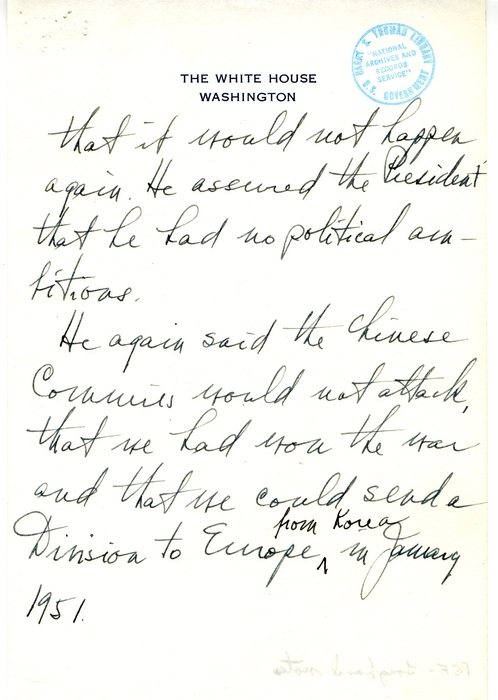 THE WHITE HOUSE
WASHINGTON
HARRY S. TRUMAN LIBRARY
"NATIONAL
ARCHIVES AND
RECORDS
SERVICE"
U.S. GOVERNMENT
that it would not happen
again. He assured the President
that he had no political am-
bitions.
He again said the Chinese
Commies would not attack,
that we had won the war
and that we could send a
from Korea
Division to Europe ^ in January
1951.